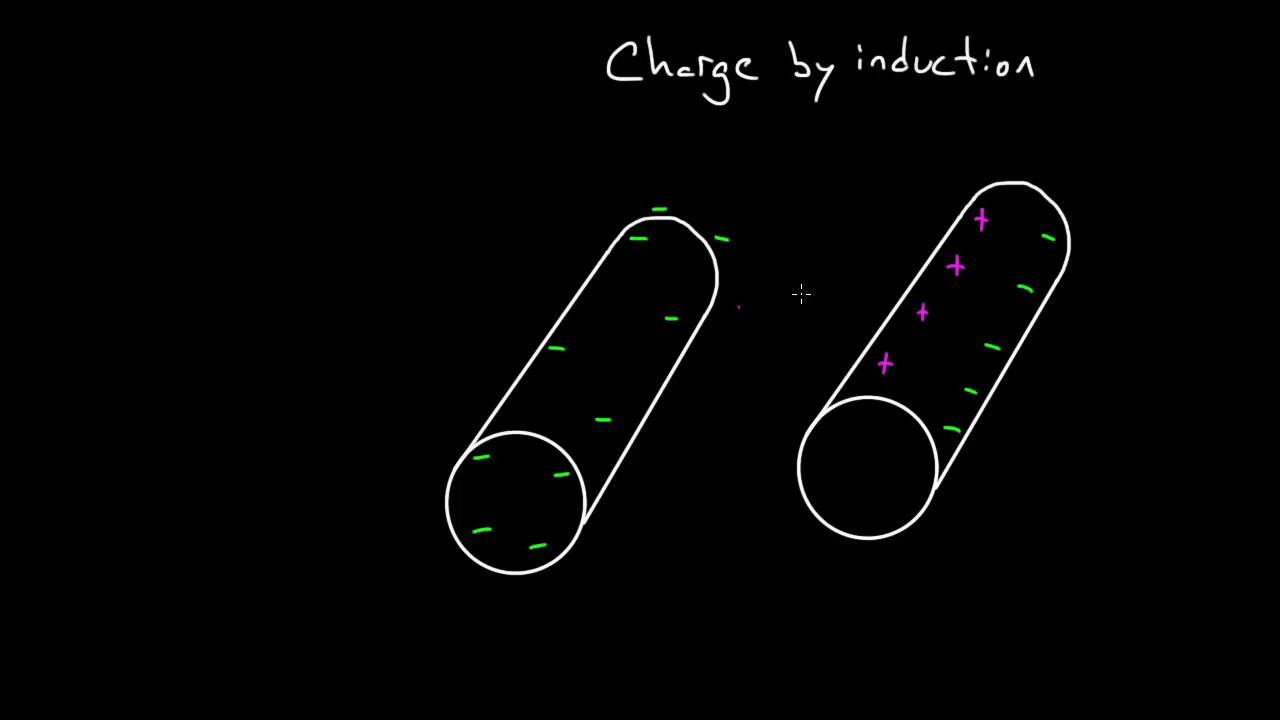 Charge by induction